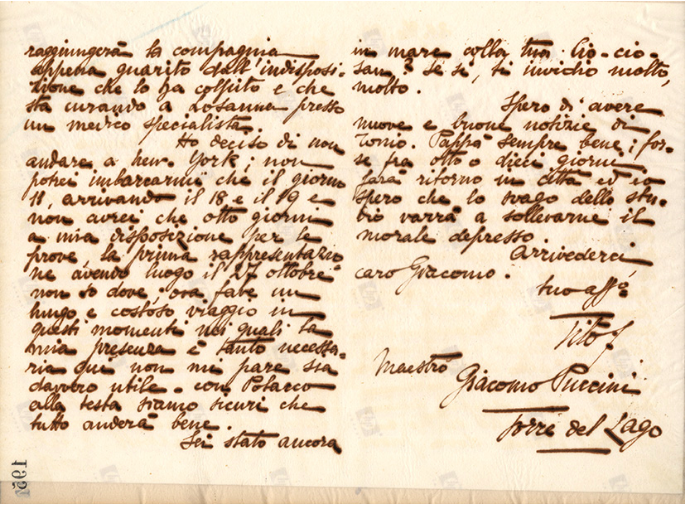 raggiungerà la compagnia
appena guarito dall'indisposi-
zione che lo ha colpito e che
sta curando a Losanna presso
un medico specialista.
Ho deciso di non
andare a New York; non
potrei imbarcarmi che il giorno
11, arrivando il 18 e il 19 e
non avrei che otto giorni
a mia disposizione per le
prove la prima rappresentazio
ne avendo luogo il 27 ottobre
non so dove: ora fare un
lungo e costoso viaggio in
questi momenti nei quali la
mia presenza è tanto necessa-
ria qui non me pare sia
davvero utile. con Polacco
alla testa siamo sicuri che
tutto anderà bene.
Sei stato ancora
in mare colla tua Cio-cio-
san? Se sì, ti invidio molto,
molto.
Spero di avere
nuove e buone notizie di
Tonio. Pappà sempre bene; for-
se fra otto o dieci giorni
farà ritorno in città ed io
spero che lo svago dello stu-
dio varrà a sollevarne il
morale depresso.
Arrivederci
caro Giacomo.
tuo affo
Tito
Maestro
Giacomo Puccini
Torre del Lago